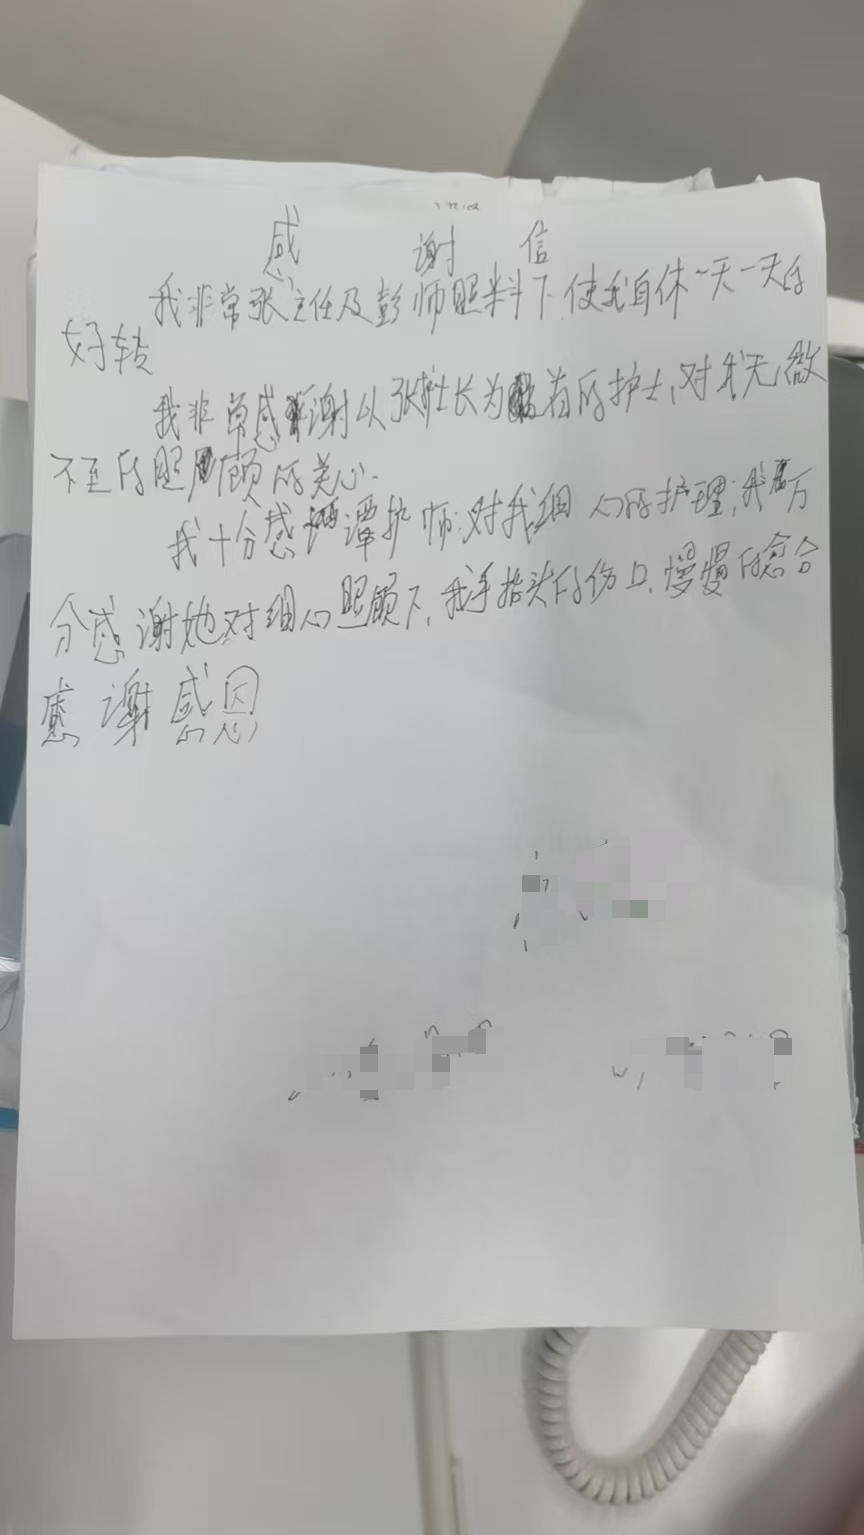 感谢信
我非常张主任及彭师照料下,使我自休一天一天的
好转
我非常感谢以张护士长为首的护士,对我无微
不至的照顾的关心.
我十分感谢谭护师:对我细心的护理;我万
分感谢她对细心照顾下,我手指头的伤口.慢慢的愈合
感谢感恩